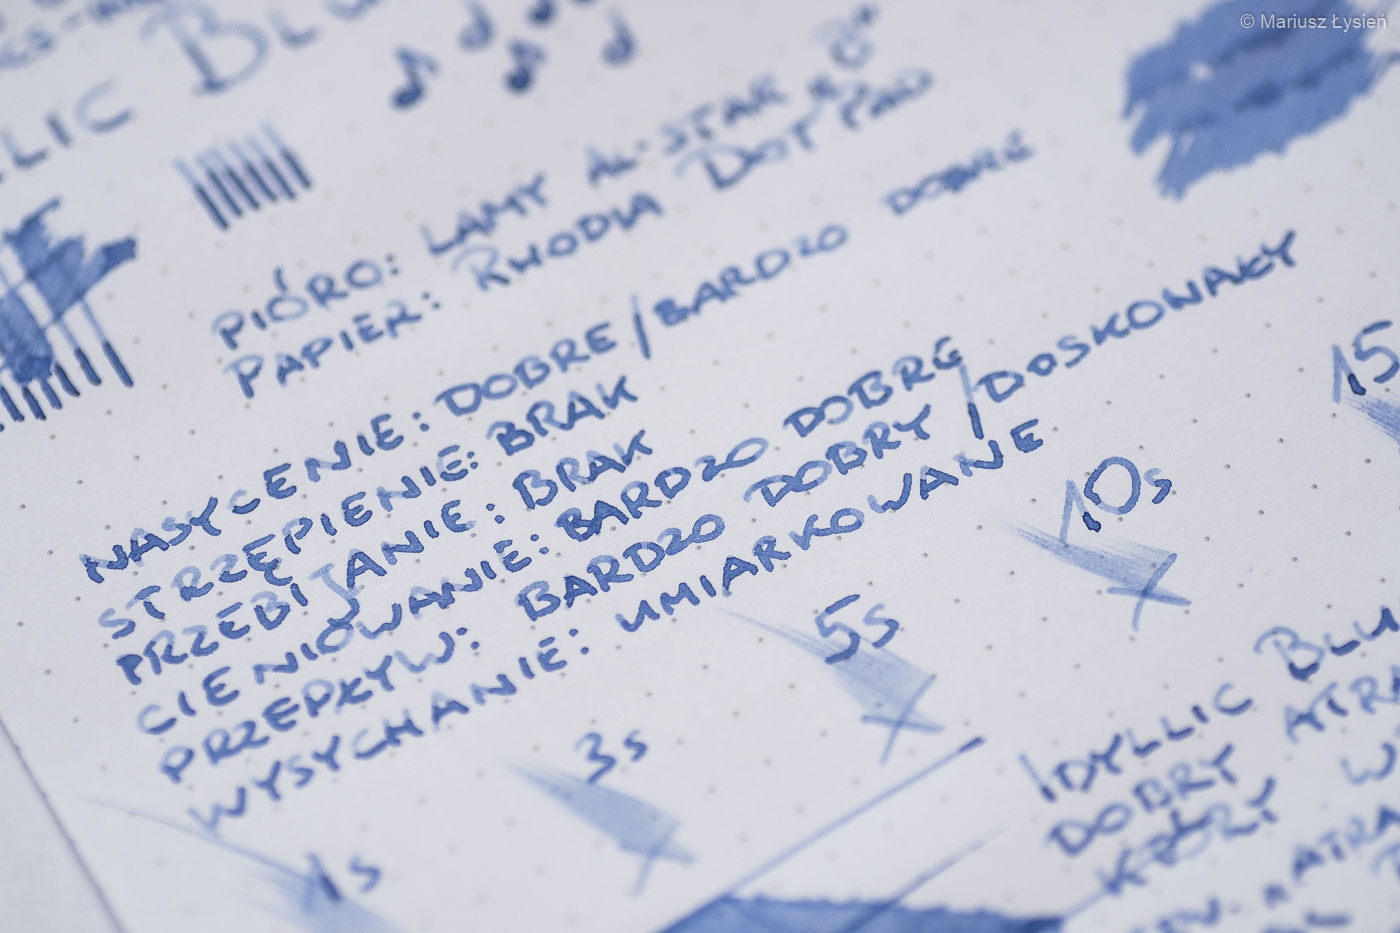 © Mariusz Łysień
LIC BLU
PIÓRO: LAMY AL-STAR
PAPIER: RHODIA DOT PAD
NASYCENIE: DOBRE/BARDZO DOBRE
STRZĘPIENIE: BRAK
PRZEBIJANIE: BRAK
CIENIOWANIE: BARDZO DOBRE
PRZEPŁYW: BARDZO DOBRY/DOSKONAŁY
WYSYCHANIE: UMIARKOWANE
1s
3s
5s
10s
15
IDYLLIC BLU
DOBRY ATRA
KTÓRY